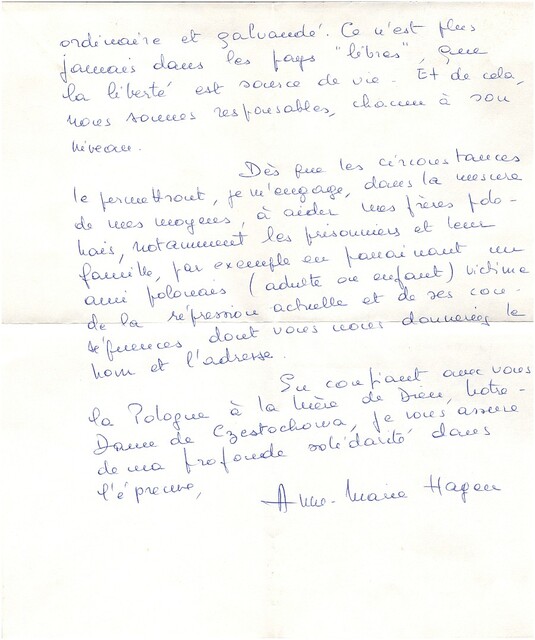 ordinaire et galvaudé. Ce n'est plus
jamais dans les pays "libres", que
la liberté est source de vie. Et de cela,
nous sommes responsables, chacun à son
niveau.
Dès que les circonstances
le permettront, je m'engage, dans la mesure
de mes moyens, à aider mes frères polo-
nais, notamment les prisonniers et leur
famille, par exemple en parrainant un
ami polonais (adulte ou enfant) victime
de la répression actuelle et de ses con-
séquences dont vous nous donneriez le
nom et l'adresse.
En confiant avec vous
la Pologne à la Mère de Dieu, Notre-
Dame de Czestochowa, je vous assure
de ma profonde solidarité dans
l'épreuve,
Anne-Marie Hagen